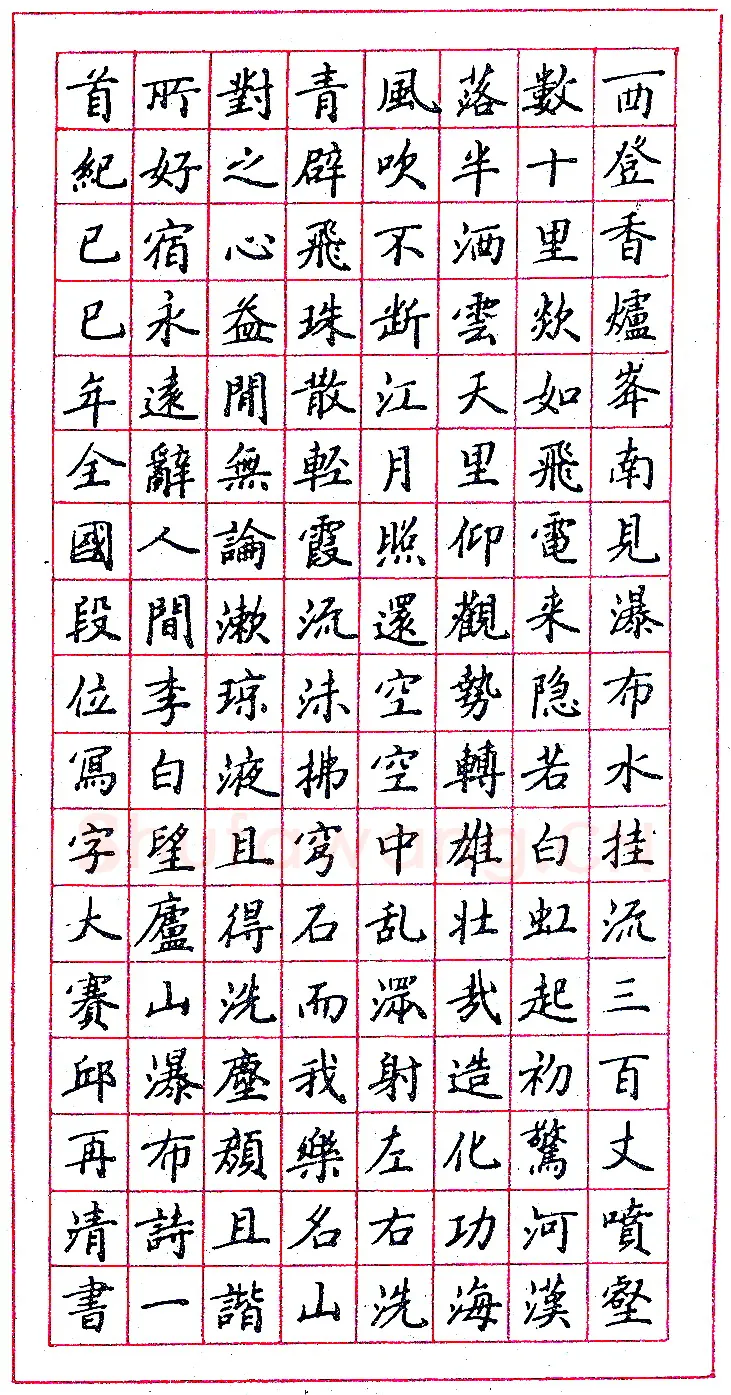 西登香爐峯南見瀑布水挂流三百丈噴壑
數十里欻如飛電来隐若白虹起初驚河漢
落半洒雲天里仰觀勢轉雄壯哉造化功海
風吹不断江月照還空空中乱潀射左右洗
青辟飛珠散輕霞流沫拂穹石而我樂名山
對之心益閒無論漱琼液且得洗塵顔且諧
所好宿永遠辭人間李白望廬山瀑布詩一
首紀己巳年全國段位寫字大賽邱再清書
Shufawang.Cn